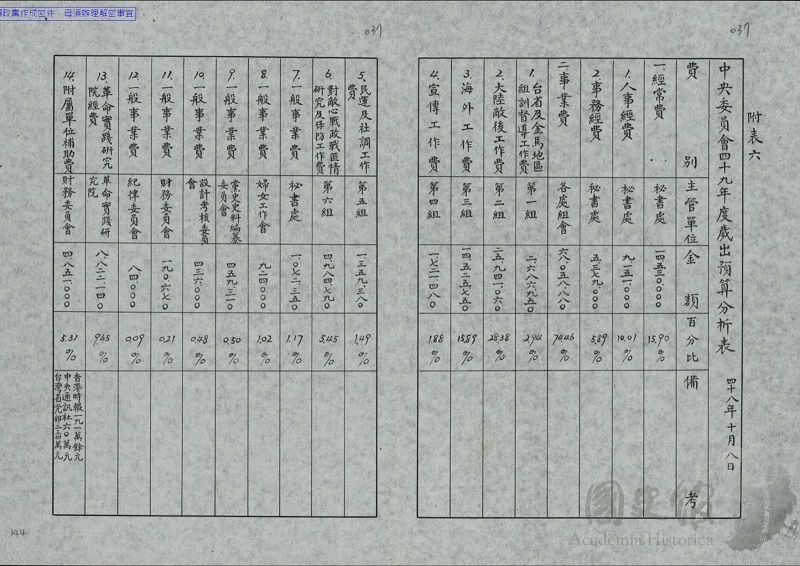 黨政黨作成密件,毋須辦理解密事宜
037
037
附表六
中央委員會四十九年度歲出預算分析表 四十八年十月八日
費別 主管單位 金額 百分比 備考
一、經常費 秘書處 一四五三0000 15.90%
1.人事經費 秘書處 九一五一000 10.01%
2.事務經費 秘書處 五三七九000 5.89%
二、事業費 各處組會 六八0五八八八0 74.46%
1.台省及金馬地區組訓督導工作費 第一組 二六八六九五0 2.94%
2.大陸敵後工作費 第二組 二五九四一0六0 28.38%
3.海外工作費 第三組 一四五二五七五0 15.89%
4.宣傳工作費 第四組 一七二一四八0 1.88%
5.民運及社調工作費 第五組 一三五九三八0 1.49%
6.對敵心戰政戰匪情研究及保防工作費 第六組 四九八四七九0 5.45%
7.一般事業費 秘書處 一0七二三五0 1.17%
8.一般事業費 婦女工作會 九二四000 1.02%
9.一般事業費 黨史史料編纂委員會 四五九三一0 0.50%
10.一般事業費 設計考核委員會 四三六000 0.48%
11.一般事業費 財務委員會 一九0六七0 0.21%
12.一般事業費 紀律委員會 八四000 0.09%
13.革命實踐研究院經費 革命實踐研究院 八八二一一四0 9.65%
14.附屬單位補助費 財務委員會 四八五一000 5.31% 香港時報一九一萬餘元
中央通訊社六0萬元
台灣省黨部二三四萬元
144
國史館
Academia Historica